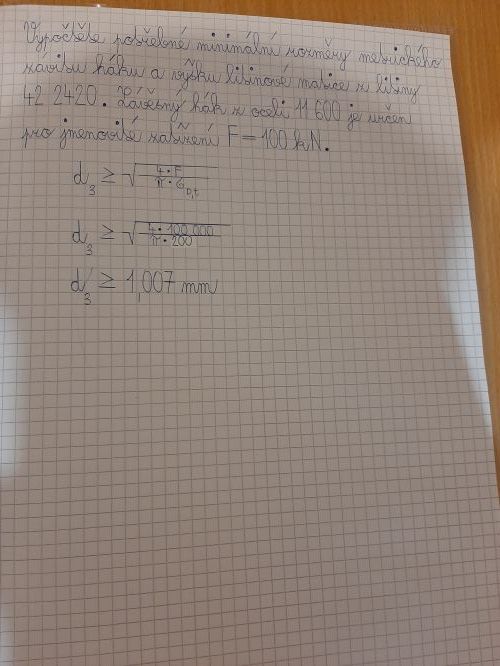 Vypočtěte potřebné minimální rozměry metrického
závitu háku a výšku litinové matice z litiny
42 2420. Závěsný hák z oceli 11 600 je určen
pro jmenovité zatížení F = 100 kN.
d₃ ≥ √(4·F / π·σ_D,t)
d₃ ≥ √(4·100 000 / π·200)
d₃ ≥ 1,007 mm